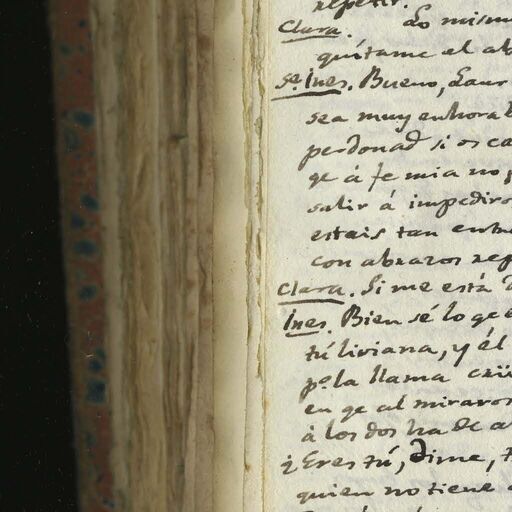 repetir.
Clara. Lo mismo
quítame el ab
Sa. Ines. Bueno, Laur
sea muy enhorab
perdonad si os ca
qe á fe mia no p
salir á impediro
estais tan entre
con abrazos rep
Clara. Si me está
Ines. Bien sé lo qe e
tú liviana, y él
po. la llama crü
en qe al miraros
á los dos ha de a
¿Eres tú, dime, t
quien no tiene